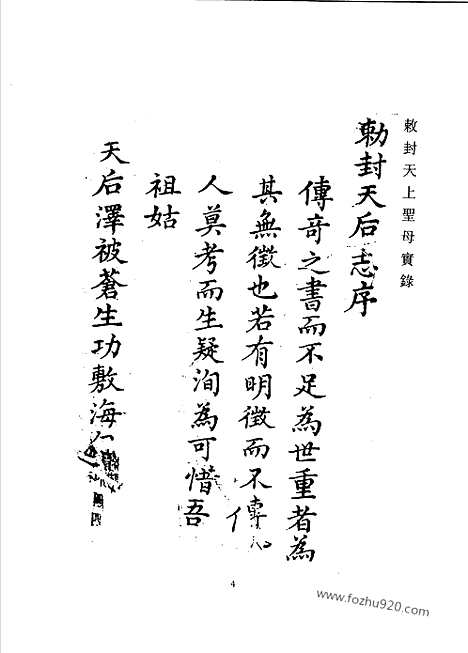 敕封天上聖母實錄
勅封天后志序
傳奇之書而不足為世重者為
其無徵也若有明徵而不傳
人莫考而生疑洵為可惜吾
祖姑
天后澤被蒼生功敷海
4
www.fozhu920.com